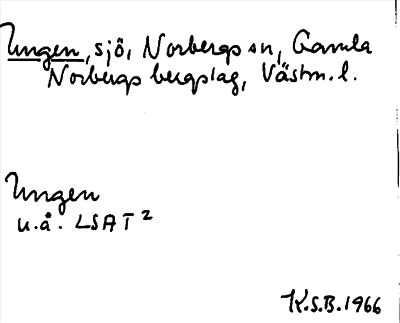 Ungen, sjö, Norbergs sn, Gamla
Norbergs bergslag, Västm. l.
Ungen
u.å. LSAT²
K.S.B. 1966